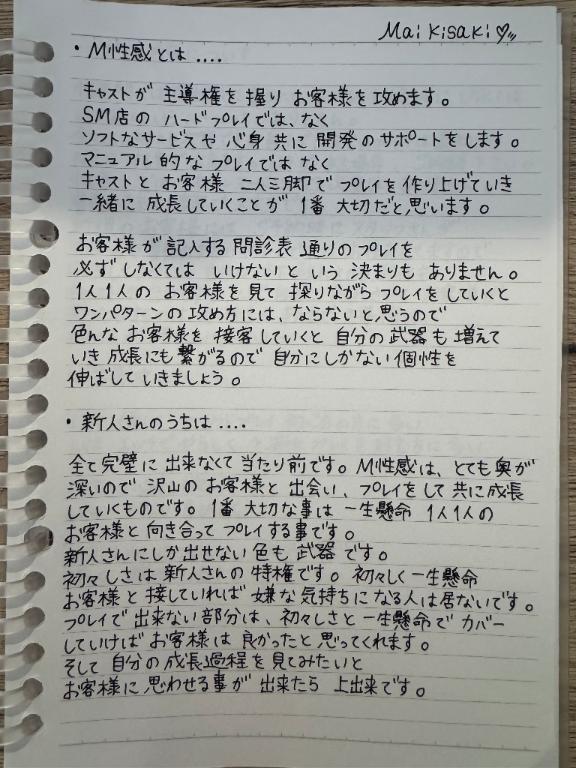 Mai Kisaki♡
・M性感とは....
キャストが 主導権を握り お客様を攻めます。
SM店の ハードプレイでは、なく
ソフトなサービスや 心身 共に 開発のサポートをします。
マニュアル的なプレイではなく
キャストと お客様 二人三脚で プレイを作り上げていき
一緒に 成長していくことが 1番 大切だと思います。
お客様が記入する問診表 通りのプレイを
必ず しなくては いけないと いう 決まりも ありません。
1人1人の お客様を見て 探りながら プレイをしていくと
ワンパターンの攻め方には、ならないと思うので
色んな お客様を 接客していくと 自分の武器も 増えて
いき 成長にも繋がるので 自分にしかない個性を
伸ばして いきましょう。
・新人さんのうちは....
全て完璧に 出来なくて当たり前です。M性感は、とても奥が
深いので 沢山の お客様と 出会い、プレイをして共に成長
していくものです。1番 大切な事は 一生懸命 1人1人の
お客様と 向き合って プレイする事です。
新人さんにしか出せない 色も 武器 です。
初々しさは 新人さんの 特権です。初々しく一生懸命
お客様と 接していれば 嫌な気持ちに なる人は 居ないです。
プレイで 出来ない部分は、初々しさと一生懸命で カバー
していけば お客様は 良かったと 思ってくれます。
そして 自分の成長過程を見てみたいと
お客様に 思わせる事が 出来たら 上出来です。